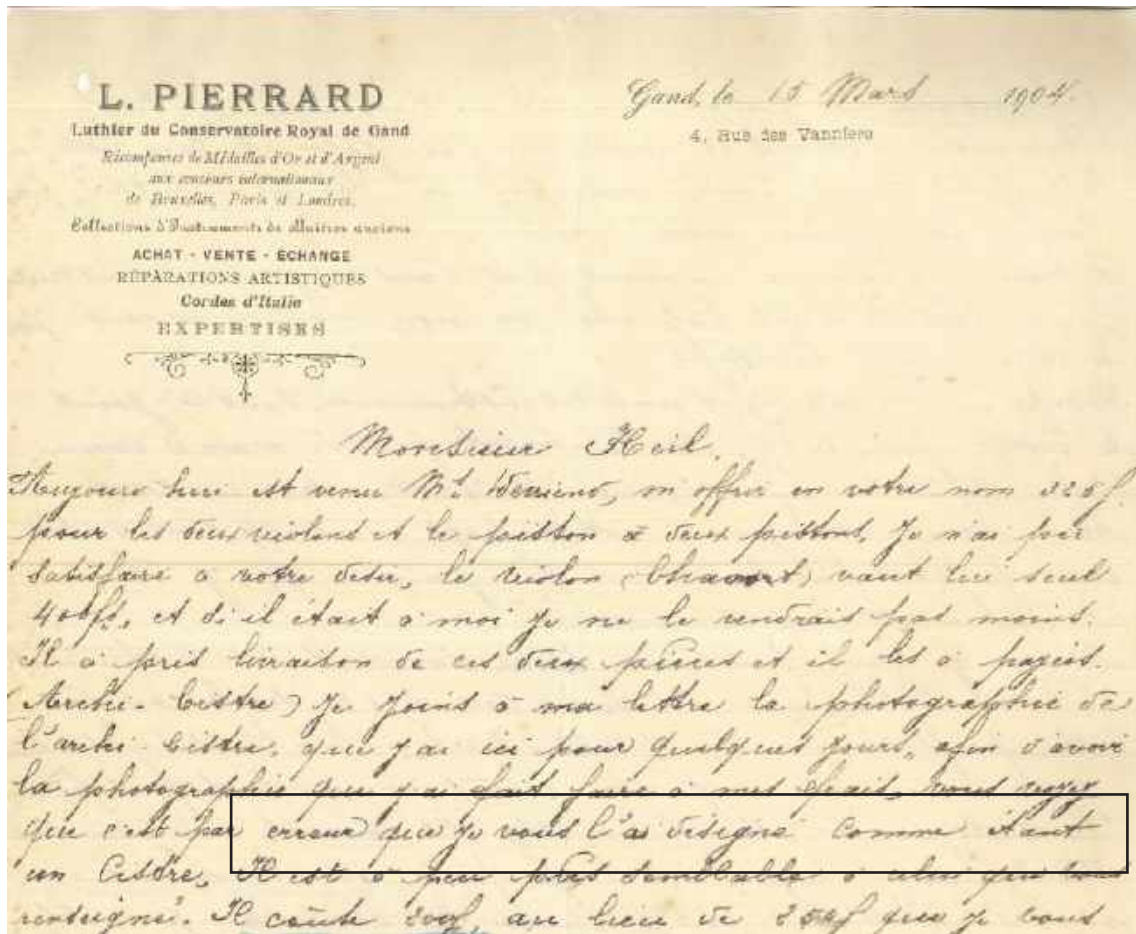 L. PIERRARD
Luthier du Conservatoire Royal de Gand
Récompenses de Médailles d'Or et d'Argent
aux concours internationaux
de Bruxelles, Paris et Londres.
Collections d'Instruments de Maîtres anciens
ACHAT - VENTE - ÉCHANGE
RÉPARATIONS ARTISTIQUES
Cordes d'Italie
EXPERTISES
Gand, le 15 Mars 1904.
4, Rue des Vanniers
Monsieur Heil.
Aujourd hui est venu Mr , en votre nom
pour les deux violons et le pisston a deux pisstons, Je n'ai per
satisfaire a votre desir, le violon vaut lui seul
400fs, et si il était a moi je ne le vendrais pas moins.
Il a pris livraison de ces deux pieces et il les a payés.
(Archi-Cistre) Je joins a ma lettre la photographie de
l'archi-Cistre, que j'ai ici pour quelques jours, afin d'avoir
la photographie que j'ai fait faire a mes frais, vous voyez
que c'est par erreur que je vous l'ai désigné comme étant
un Cistre, Il est a peu près semblable a celui que vous
renseigné. Il coûte 200f, au lieu de que je vous